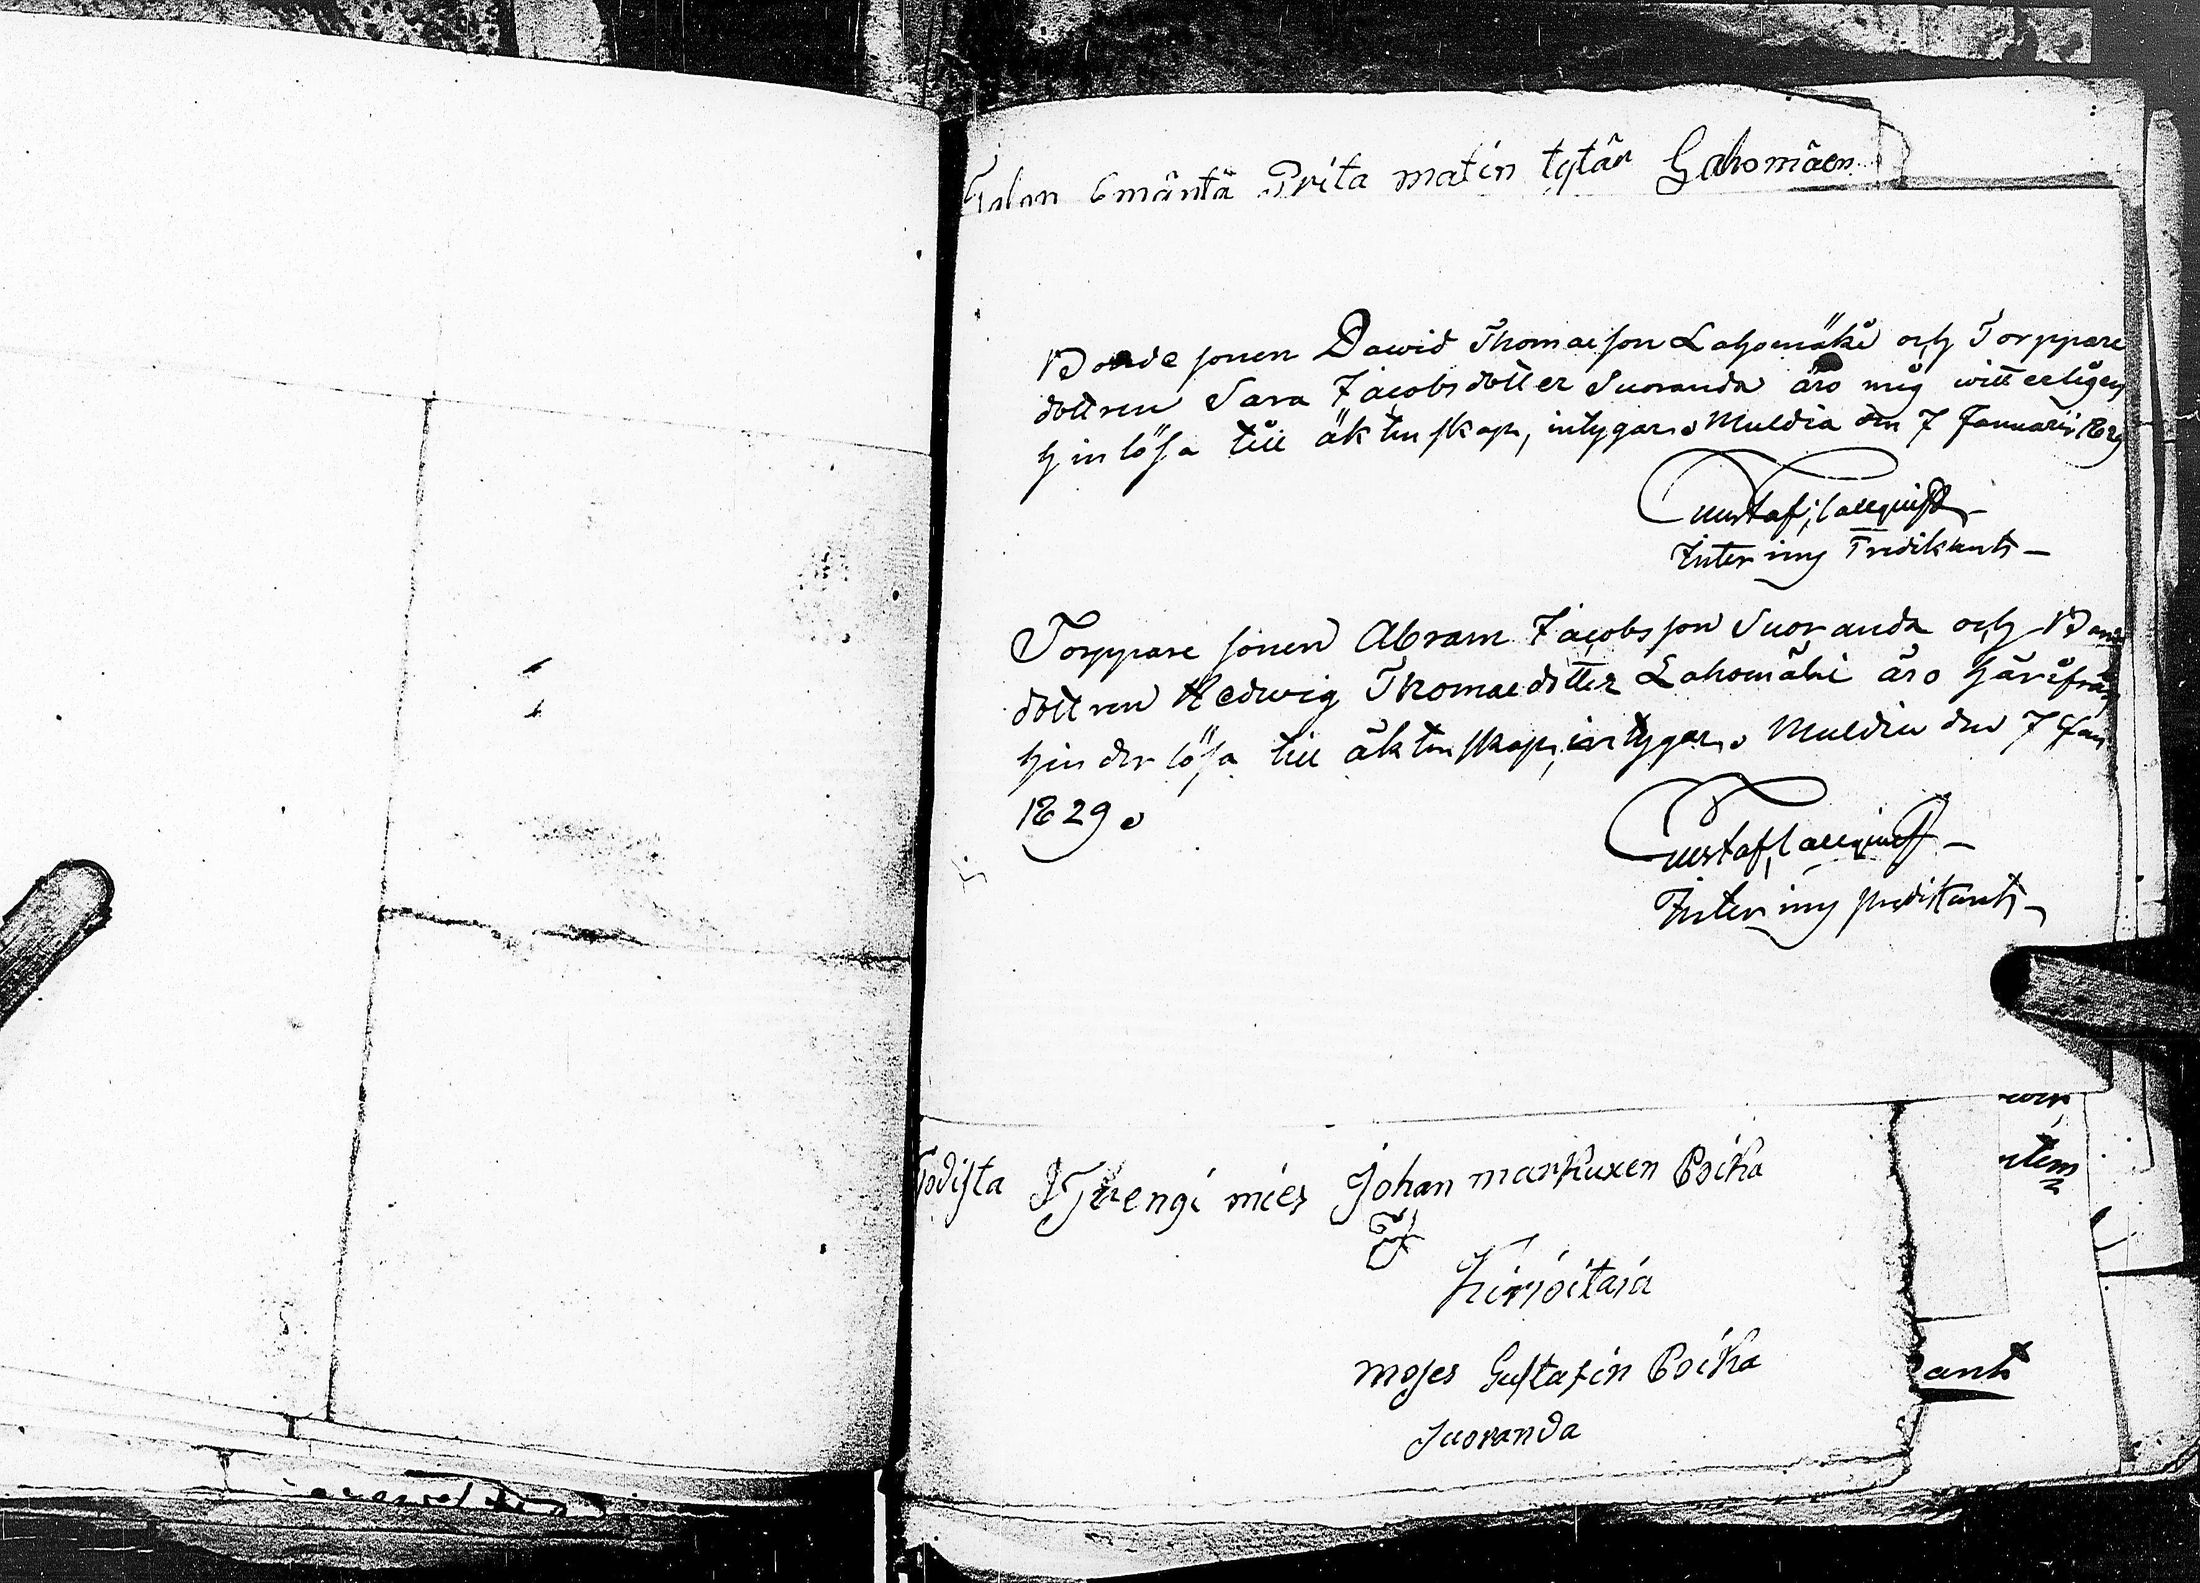 Talon Emäntä Prita matin tytär Lahomäen
Bondesonen Dawid Thomasson Lahomäki och Torppare
dottren Sara Jacobsdotter Suoranda äro mig witterligen
hinlösa till äktenskap, intygar. Muldia den 7 Januarii 1829
Gustaf Callquist
Interims Predikant
Torppare sonen Abram Jacobsson Suoranda och Bonde
dottren Hedwig Thomaedotter Lahomäki äro härifrån
hinderlösa till äktenskap, intygar. Muldia den 7 Jan
1829.
Gustaf Callquist
Interims predikant
Todista Trengi mies Johan markuxen Poika
Kirjoitaja
moses Gustafin Poika
Suoranda
item
ant